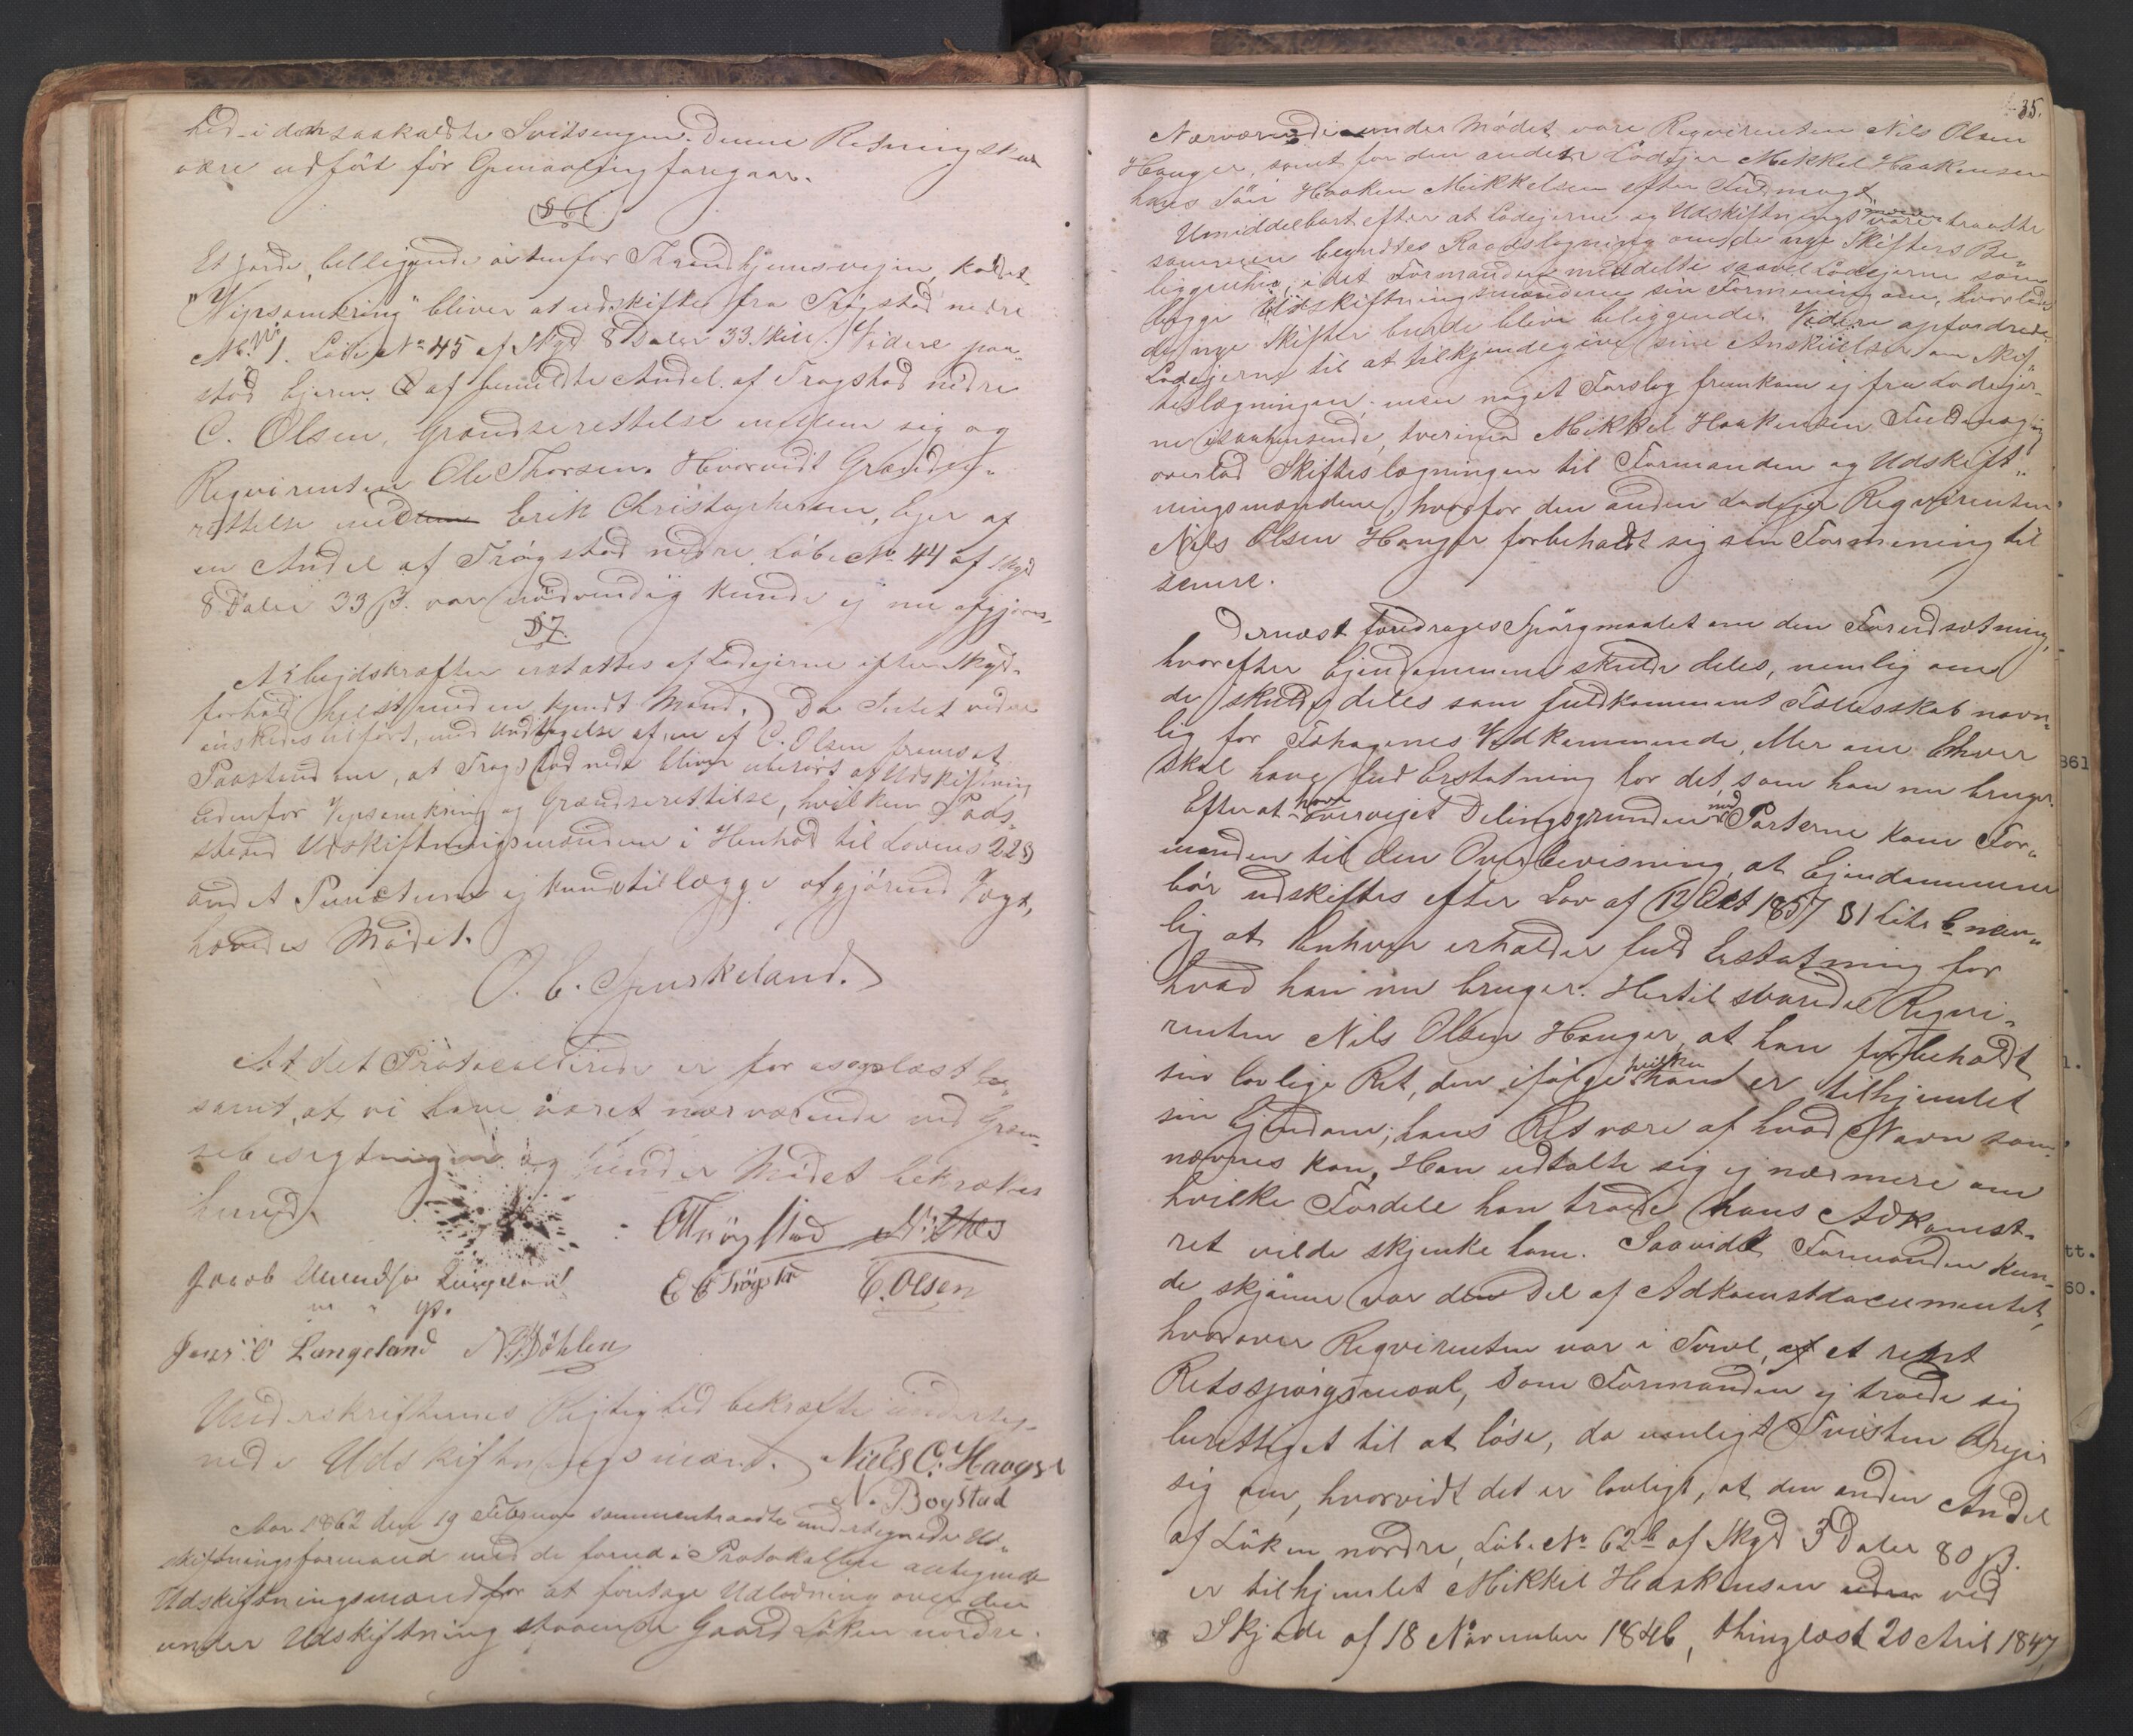 hed i den saakaldte Svitsengen. Denne Retning skal
være udført før Opmaaling foregaar.
§ 6
Et Jorde, belliggende østenfor Throndhjemsveien, kaldet
"Vipsomkring" bliver at udskifte fra Trøgstad nedre
No. 1. Løbe No 45 af Skyld 8 Daler 33 Skill. Videre paa-
stod Ejeren af bemeldte Andel af Trøgstad nedre
C. Olsen, Grændserettelse mellem sig og
Reqvirenten Ole Thorsen. Hvorvidt Grændse-
rettelse med Erik Christophersen, Ejer af
en Andel af Trøgstad nedre Løbe No 44 af Skyld
8 Daler 33 β. var nødvendig kunde ej nu afgjøres.
§ 7.
Arbejdskraften erstattes af Lodejerne efter Skyld-
forhold helst med en kjendt Mand. Da Intet videre
ønskedes tilført, med Undtagelse af en af C. Olsen fremsat
Paastand om, at Trøgstad nedre bliver uberørt af Udskiftning
udenfor Vipsomkring og Grændserettelse, hvilken Paa-
stand Udskiftningsmændene i Henhold til Lovens 22 §
andet Punctum ej kunde tillægge afgjørende Vægt,
hævedes Mødet.
O. E. Spurkeland.
At det Protocollerede er for os oplæst
samt, at vi have været nærværende ved Græn-
sebesigtningen og under Mødet bekræftes
herved.
OTrøgstad N: Næs
Jacob Amundsen Langeland
E C Trøgstad C. Olsen
m p.
Jens O Langeland N. Døhlen
Underskrifternes Rigtighed bekræfte underteg-
nede Udskiftningsmænd. Niels O. Hauger
N. Bogstad
Aar 1862 den 19 Februar sammentraadte undertegnede Ud-
skiftningsformand med de forud i Protokollen antegnede
Udskiftningsmænd for at foretage Udlodning over den
under Udskiftning staaende Gaard Løken nordre.
35.
Nærværende under Mødet vare Reqvirenten Nils Olsen
Hauger, samt for den anden Lodejer Mikkel Haakensen
hans Søn Haaken Mikkelsen efter Fuldmagt.
Umiddelbart efter at Lodejerne og Udskiftningsmænd vare traadte
sammen begyndtes Raadslagning om de nye Skifters Be-
liggenhed, idet Formanden meddelte saavel Lodejerne som
begge Udskiftningsmændene sin Formening om, hvorledes
de nye Skifter burde blive beliggende. Videre opfordrede
Lodejerne til at tilkjendegive sine Anskuelser om Skif-
teslægningen; men noget Forslag fremkom ej fra Lodejer-
ne isaahenseende, tverimod Mikkel Haakensen Fuldmægtig
overlod Skifteslægningen til Formanden og Udskift-
ningsmændene, hvorfor den anden Lodejer Reqvirenten
Nils Olsen Hauger forbeholdt sig sin Formening til
senere.
Dernæst foredroges Spørgmaalet om den Forudsætning,
hvorefter Ejendommene skulde deles, nemlig om
de skulde deles som fuldkomment Fællesskab navn-
lig for Vedkommende, eller om Enhver
skal have fuld Erstatning for det, som han nu bruger.
Efter at have overvejet Delingsgrunden med Parterne kom For-
manden til den Overbevisning, at Ejendommene
bør udskiftes efter Lov af 12 Oct 1857 § 1 Litr b nem-
lig at Enhver erholder fuld Erstatning for
hvad han nu bruger. Hertil svarede Reqvi-
renten Nils Olsen Hauger, at han forbeholdt
sin lovlige Ret, den ifølge hvilken hand er tilhjemlet
sin Ejendom; hans Ret være af hvad Navn som
nævnes kan. Han udtalte sig ej nærmere om
hvilke Fordele han troede hans Adkomst-
ret vilde skjenke ham. Saavidt Formanden kun-
de skjønne var den Del af Adkomstdocumentet,
hvorover Reqvirenten var i Tvivl, af et rent
Retsspørgsmaal, som Formanden ej troede sig
berettiget til at løse, da nemligt Tvisten drejer
sig om, hvorvidt det er lovligt, at den anden Andel
af Løken nordre, Løbe No 62b af Skyld 3 Daler 80 β.
er tilhjemlet Mikkel Haakensen uden ved
Skjøde af 18 November 1846, thinglæst 20 April 1847,
861
1.
tt.
60.